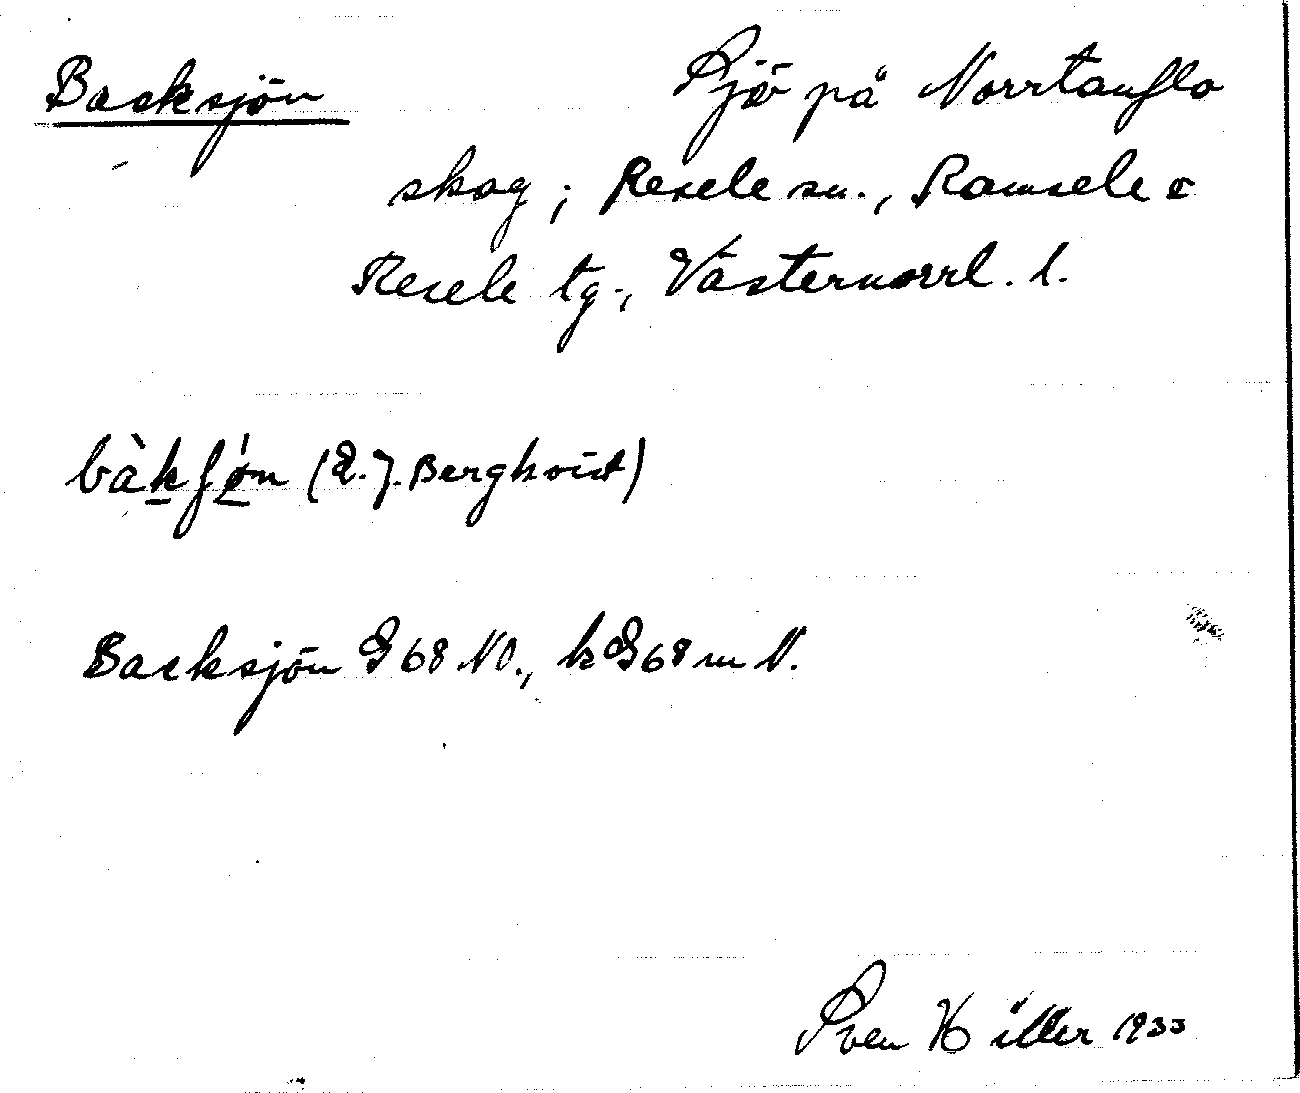 Backsjön Sjö på Norrtanflo
skog; Resele sn., Ramsele o
Resele tg., Västernorrl. l.
bàkʃǿn (E. J. Bergkvist)
Backsjön G 68 NO., k G 68 m N.
Sven Hiller 1933